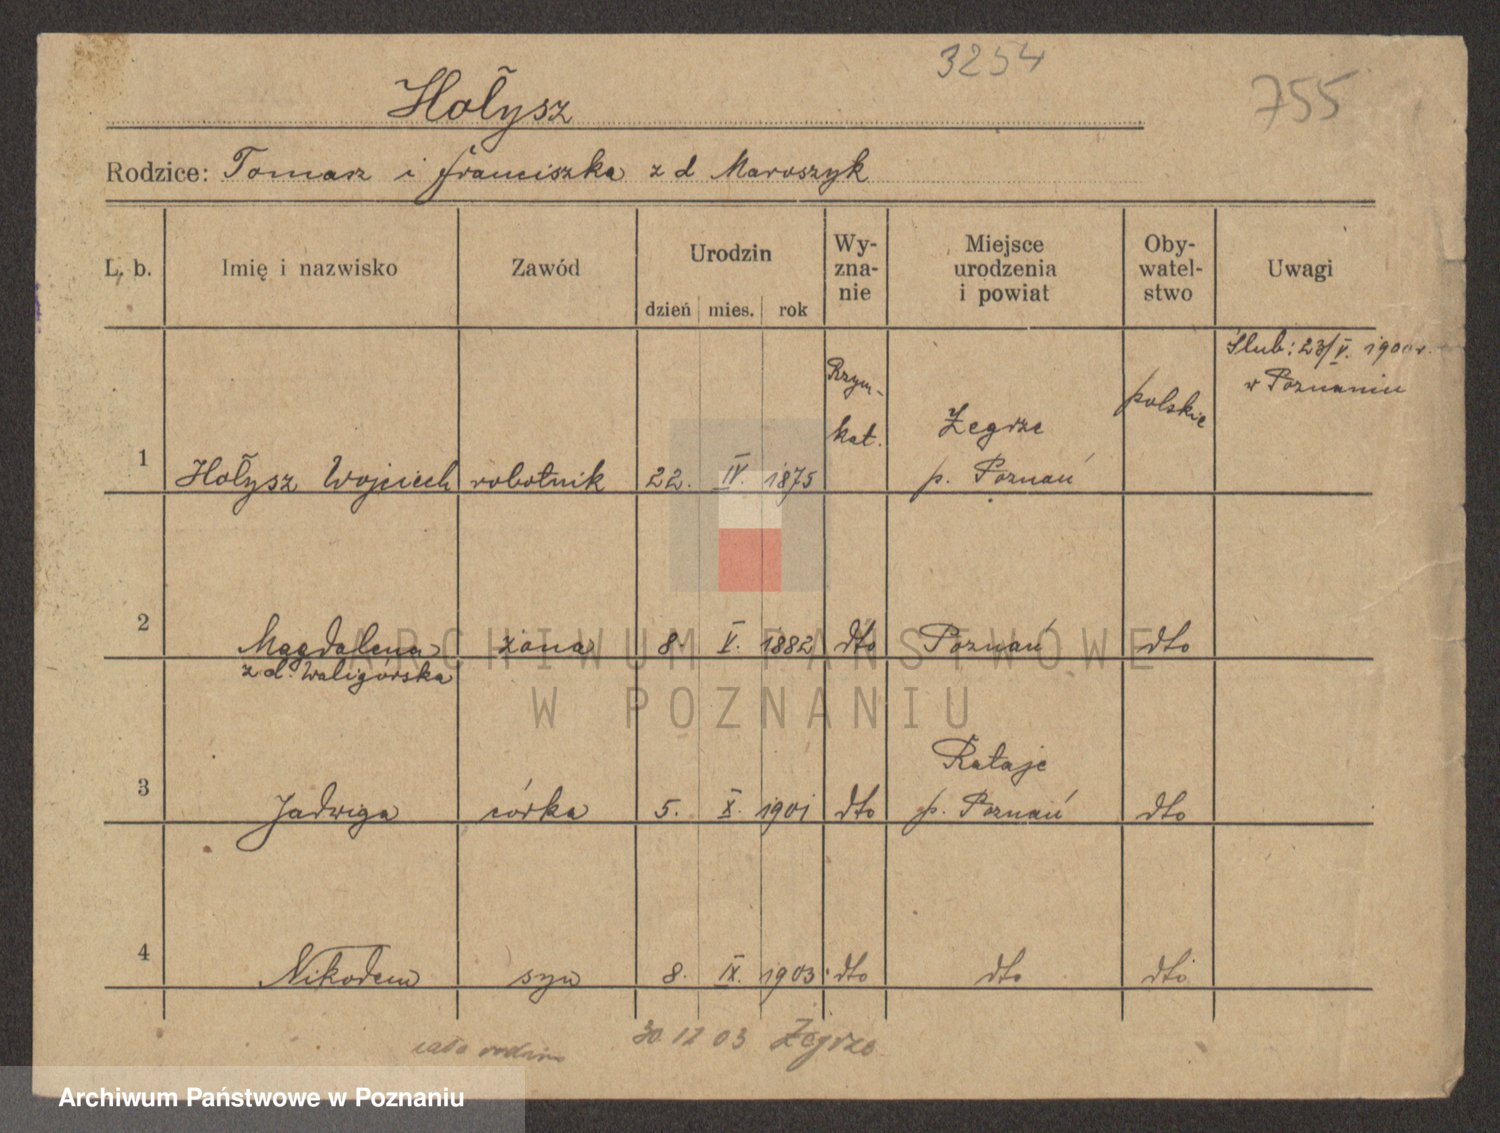 3254
755
Hołysz
Rodzice: Tomasz i Franciszka z d Maroszyk
L. b.
Imię i nazwisko
Zawód
Urodzin
dzień mies. rok
Wy-
zna-
nie
Miejsce
urodzenia
i powiat
Oby-
watel-
stwo
Uwagi
1 Hołysz Wojciech robotnik 22. IV. 1875
Rzym-
kat.
Żegrze
p. Poznań
polskie
Ślub: 23/V. 1900 r.
w Poznaniu
2 Magdalena żona 8. V. 1882 dto Poznań dto
z d. Waligórska
3 Jadwiga córka 5. X. 1901 dto
Rataje
p. Poznań dto
4 Nikodem syn 8. IX. 1903 dto dto dto
cała rodzina
30 12 03 Żegrze
ARCHIWUM PAŃSTWOWE
W POZNANIU
Archiwum Państwowe w Poznaniu